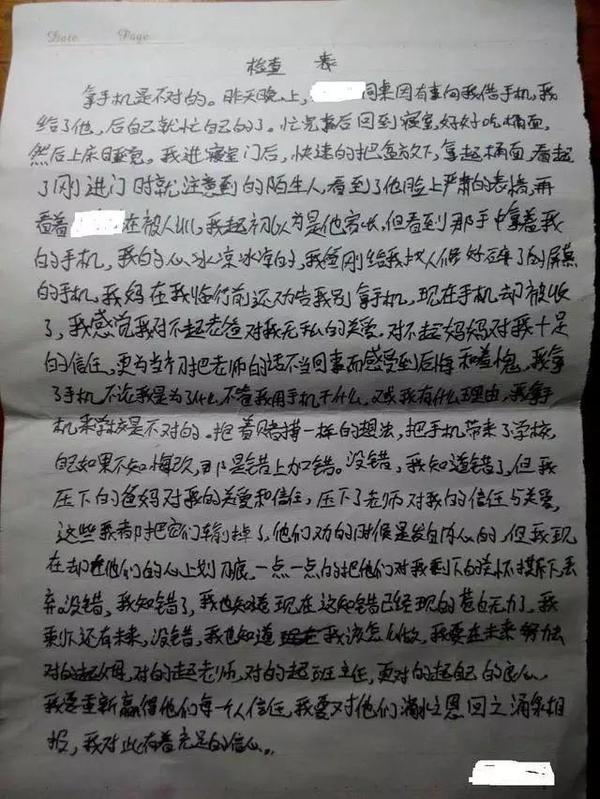 Date Page
检查 表
拿手机是不对的。昨天晚上, 同桌因有事向我借手机,我
给了他,后自己就忙自己的了。忙完事后回到寝室,好好吃桶面,
然后上床睡觉。我进寝室门后,快速的把盆放下,拿起桶面,看起
了刚进门时就注意到的陌生人,看到了他脸上严肃的表情,再
看着 在被人训,我起初认为是他寄长,但看到那手中拿着我
的手机,我的心冰凉冰凉的,我爸刚给我找人修好碎了的屏幕
的手机,我妈在我临行前还劝告我别拿手机,现在手机却被收
了,我感觉我对不起老爸对我无私的关爱,对不起妈妈对我十足
的信任,更为当初把老师的话不当回事而感受到后悔和羞愧,我拿
了手机,不论我是为了什么,不管我用手机干什么,又或我有什么理由,我拿手
机来学校是不对的。抱着赌博一样的想法,把手机带来了学校,
自己如果不知悔改,那是错上加错。没错,我知道错了,但我
压下的爸妈对我的关爱和信任,压下了老师对我的信任与关爱,
这些我都把它们输掉了,他们劝的时候是发自内心的,但我现
在却在他们的心上划刀痕,一点一点的把他们对我剩下的关怀撕下丢
弃。没错,我知错了,我也知道现在这知错已经现的苍白无力了,我
还有未来,没错,我也知道 我该怎么做,我要在未来努力
对的起父母,对的起老师,对的起班主任,更对的起自己的良心,
我要重新赢得他们每一个人信任,我要对他们滴水之恩回之涌泉相
报,我对此有着充足的信心。